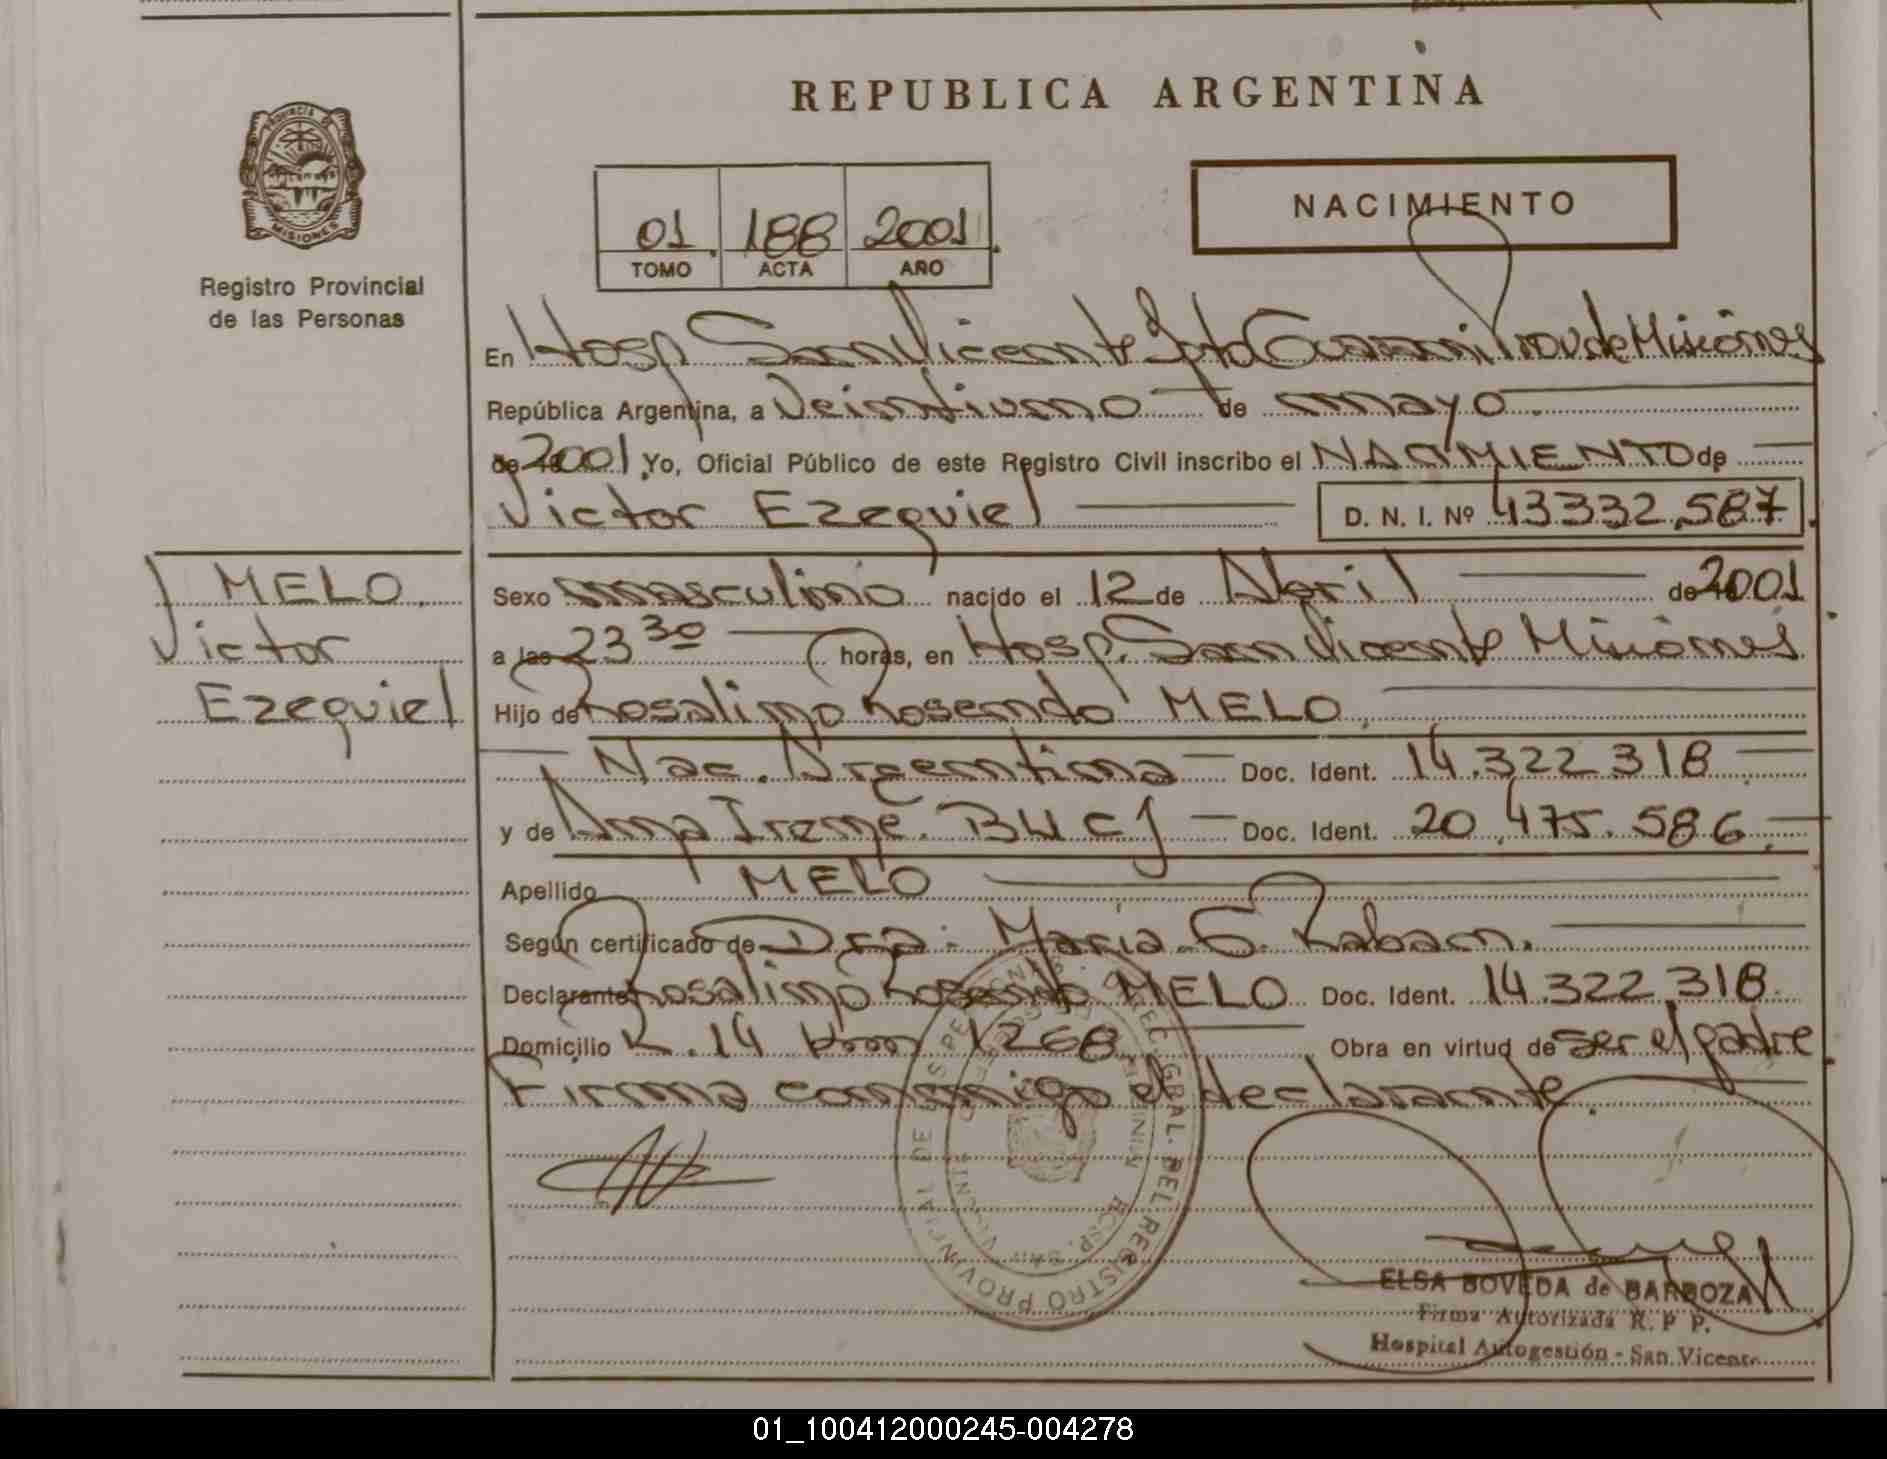 REPUBLICA ARGENTINA
PROVINCIA D
MISIONES
Registro Provincial
de las Personas
01 188 2001
TOMO ACTA AÑO
NACIMIENTO
En Hosp San Vicente Dpto Guarani Prov. de Misiónes
República Argentina, a Veintiuno de mayo
de 2001 Yo, Oficial Público de este Registro Civil inscribo el NACIMIENTO de
Victor Ezequiel D. N. I. Nº 43332.587
MELO
Victor
Ezequiel
Sexo masculino nacido el 12 de Abril de 2001
a las 23 30 horas, en Hosp. San Vicente Misiónes
Hijo de Rosalino Rosendo MELO
Nac. Argentina Doc. Ident. 14.322 318
y de Ana Irene. Doc. Ident. 20.475.586
Apellido MELO
Según certificado de Dra. Maria. Raban.
Declarante Rosalino Rosendo MELO Doc. Ident. 14.322.318
Domicilio R. 14 km 1268 Obra en virtud de ser el padre
Firma conmigo el declarante.
DIREC. GRAL. DEL REGISTRO PROVINCIAL DE LAS PERSONAS
HOSP. SAN VICENTE
ELSA BOVEDA de BARBOZA
Firma Autorizada R. P P.
Hospital Autogestión - San Vicente
01_100412000245-004278